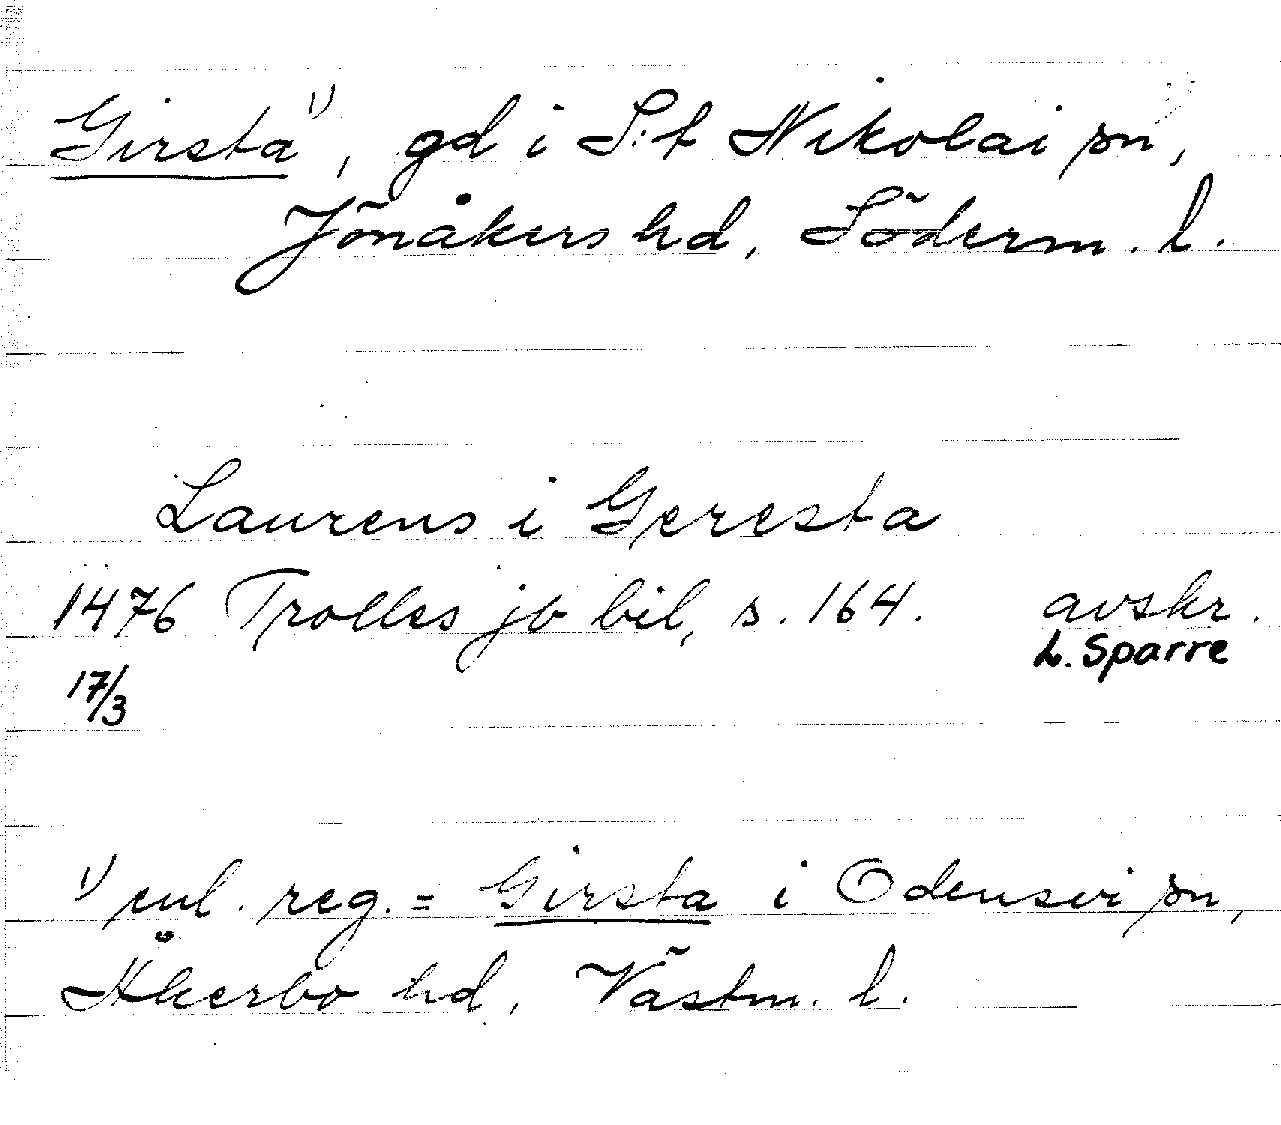 Girsta 1), gd i S:t Nikolai sn,
Jönåkers hd, Söderm. l.
Laurens i Geresta
1476 Trolles jb bil, s. 164. avskr.
17/3 L. Sparre
1) enl. reg. = Girsta i Odensvi sn,
Åkerbo hd, Västm. l.